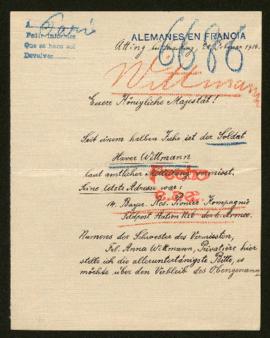 A
Papá
Pedir informes
Que se hara así
Devolver
ALEMANES EN FRANCIA
6686
1916.
Wittmann
Euere Königliche Majestät!
Seit einem halben Jahr ist der Soldat
Xaver Wittmann
laut amtlicher Meldung vermisst.
Seine letzte Adresse war:
14. Bayr. Res. Pionier Kompagnie
Feldpost Station No der 6. Armee.
Namens der Schwester des Vermissten,
Frl. Anna Wittmann, Privatière hier
stelle ich die alleruntertänigste Bitte, es
möchte über den Verbleib des Obengenannten